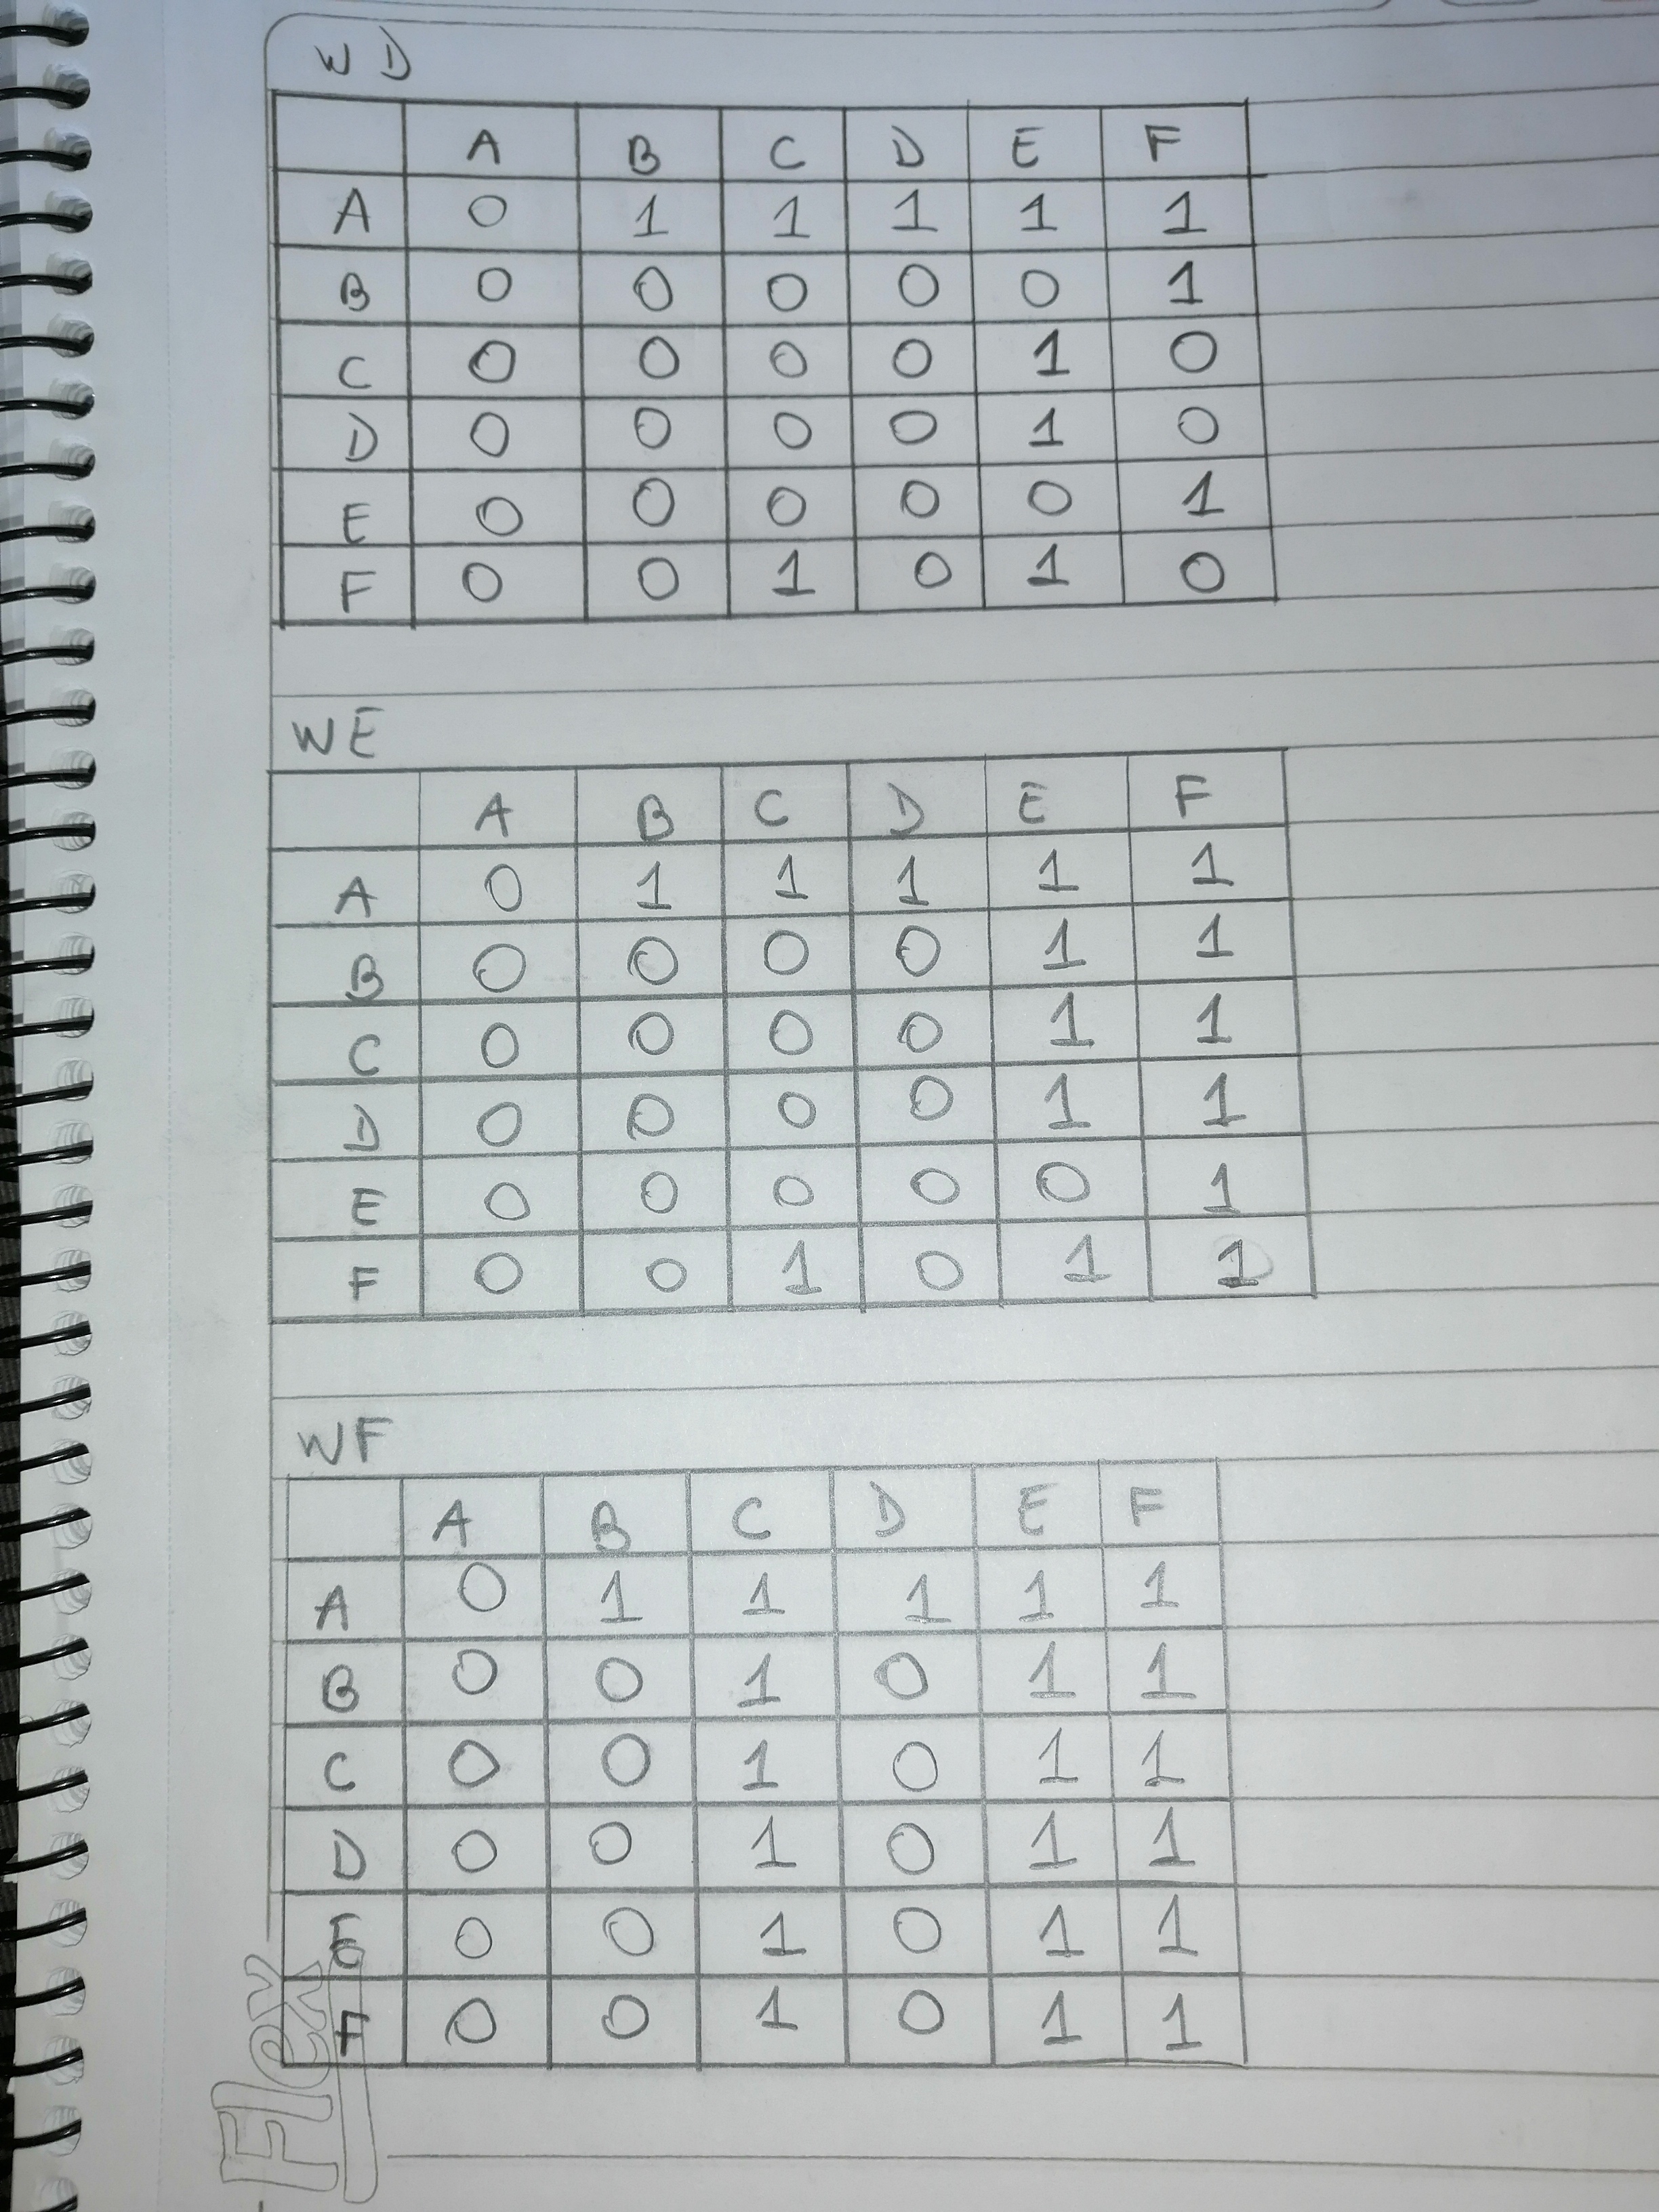 WD
A B C D E F
A 0 1 1 1 1 1
B 0 0 0 0 0 1
C 0 0 0 0 1 0
D 0 0 0 0 1 0
E 0 0 0 0 0 1
F 0 0 1 0 1 0
WE
A B C D E F
A 0 1 1 1 1 1
B 0 0 0 0 1 1
C 0 0 0 0 1 1
D 0 0 0 0 1 1
E 0 0 0 0 0 1
F 0 0 1 0 1 1
WF
A B C D E F
A 0 1 1 1 1 1
B 0 0 1 0 1 1
C 0 0 1 0 1 1
D 0 0 1 0 1 1
E 0 0 1 0 1 1
F 0 0 1 0 1 1
Flex